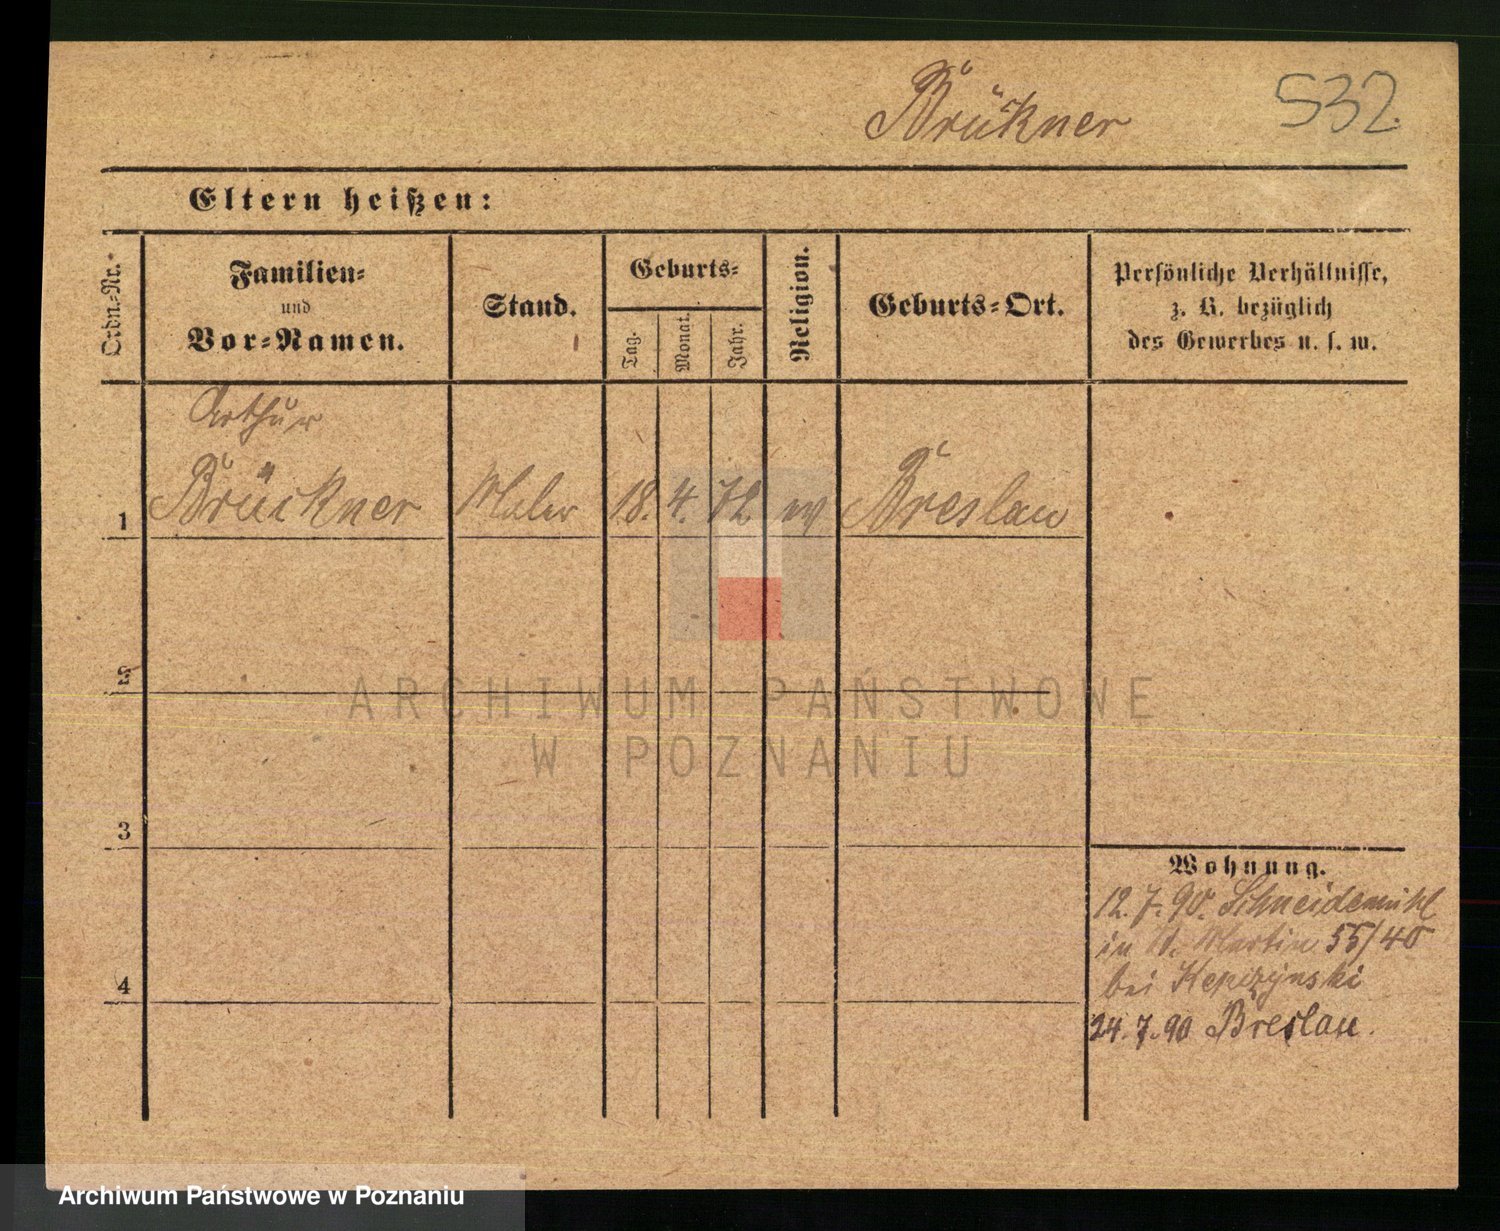 Brükner 532
Eltern heißen:
Ordn.-Nr.
Familien-
und
Vor-Namen.
Stand.
Geburts-
Tag.
Monat.
Jahr.
Religion.
Geburts-Ort.
Persönliche Verhältnisse,
z. B. bezüglich
des Gewerbes u. s. w.
Arthur
1 Brückner Maler 18. 4. 72 ev Breslau
2
ARCHIWUM PAŃSTWOWE
W POZNANIU
3
Wohnung.
12. 7. 90. Schneidemühl
in St. Martin 55/40
bei
4
24. 7. 90 Breslau.
Archiwum Państwowe w Poznaniu